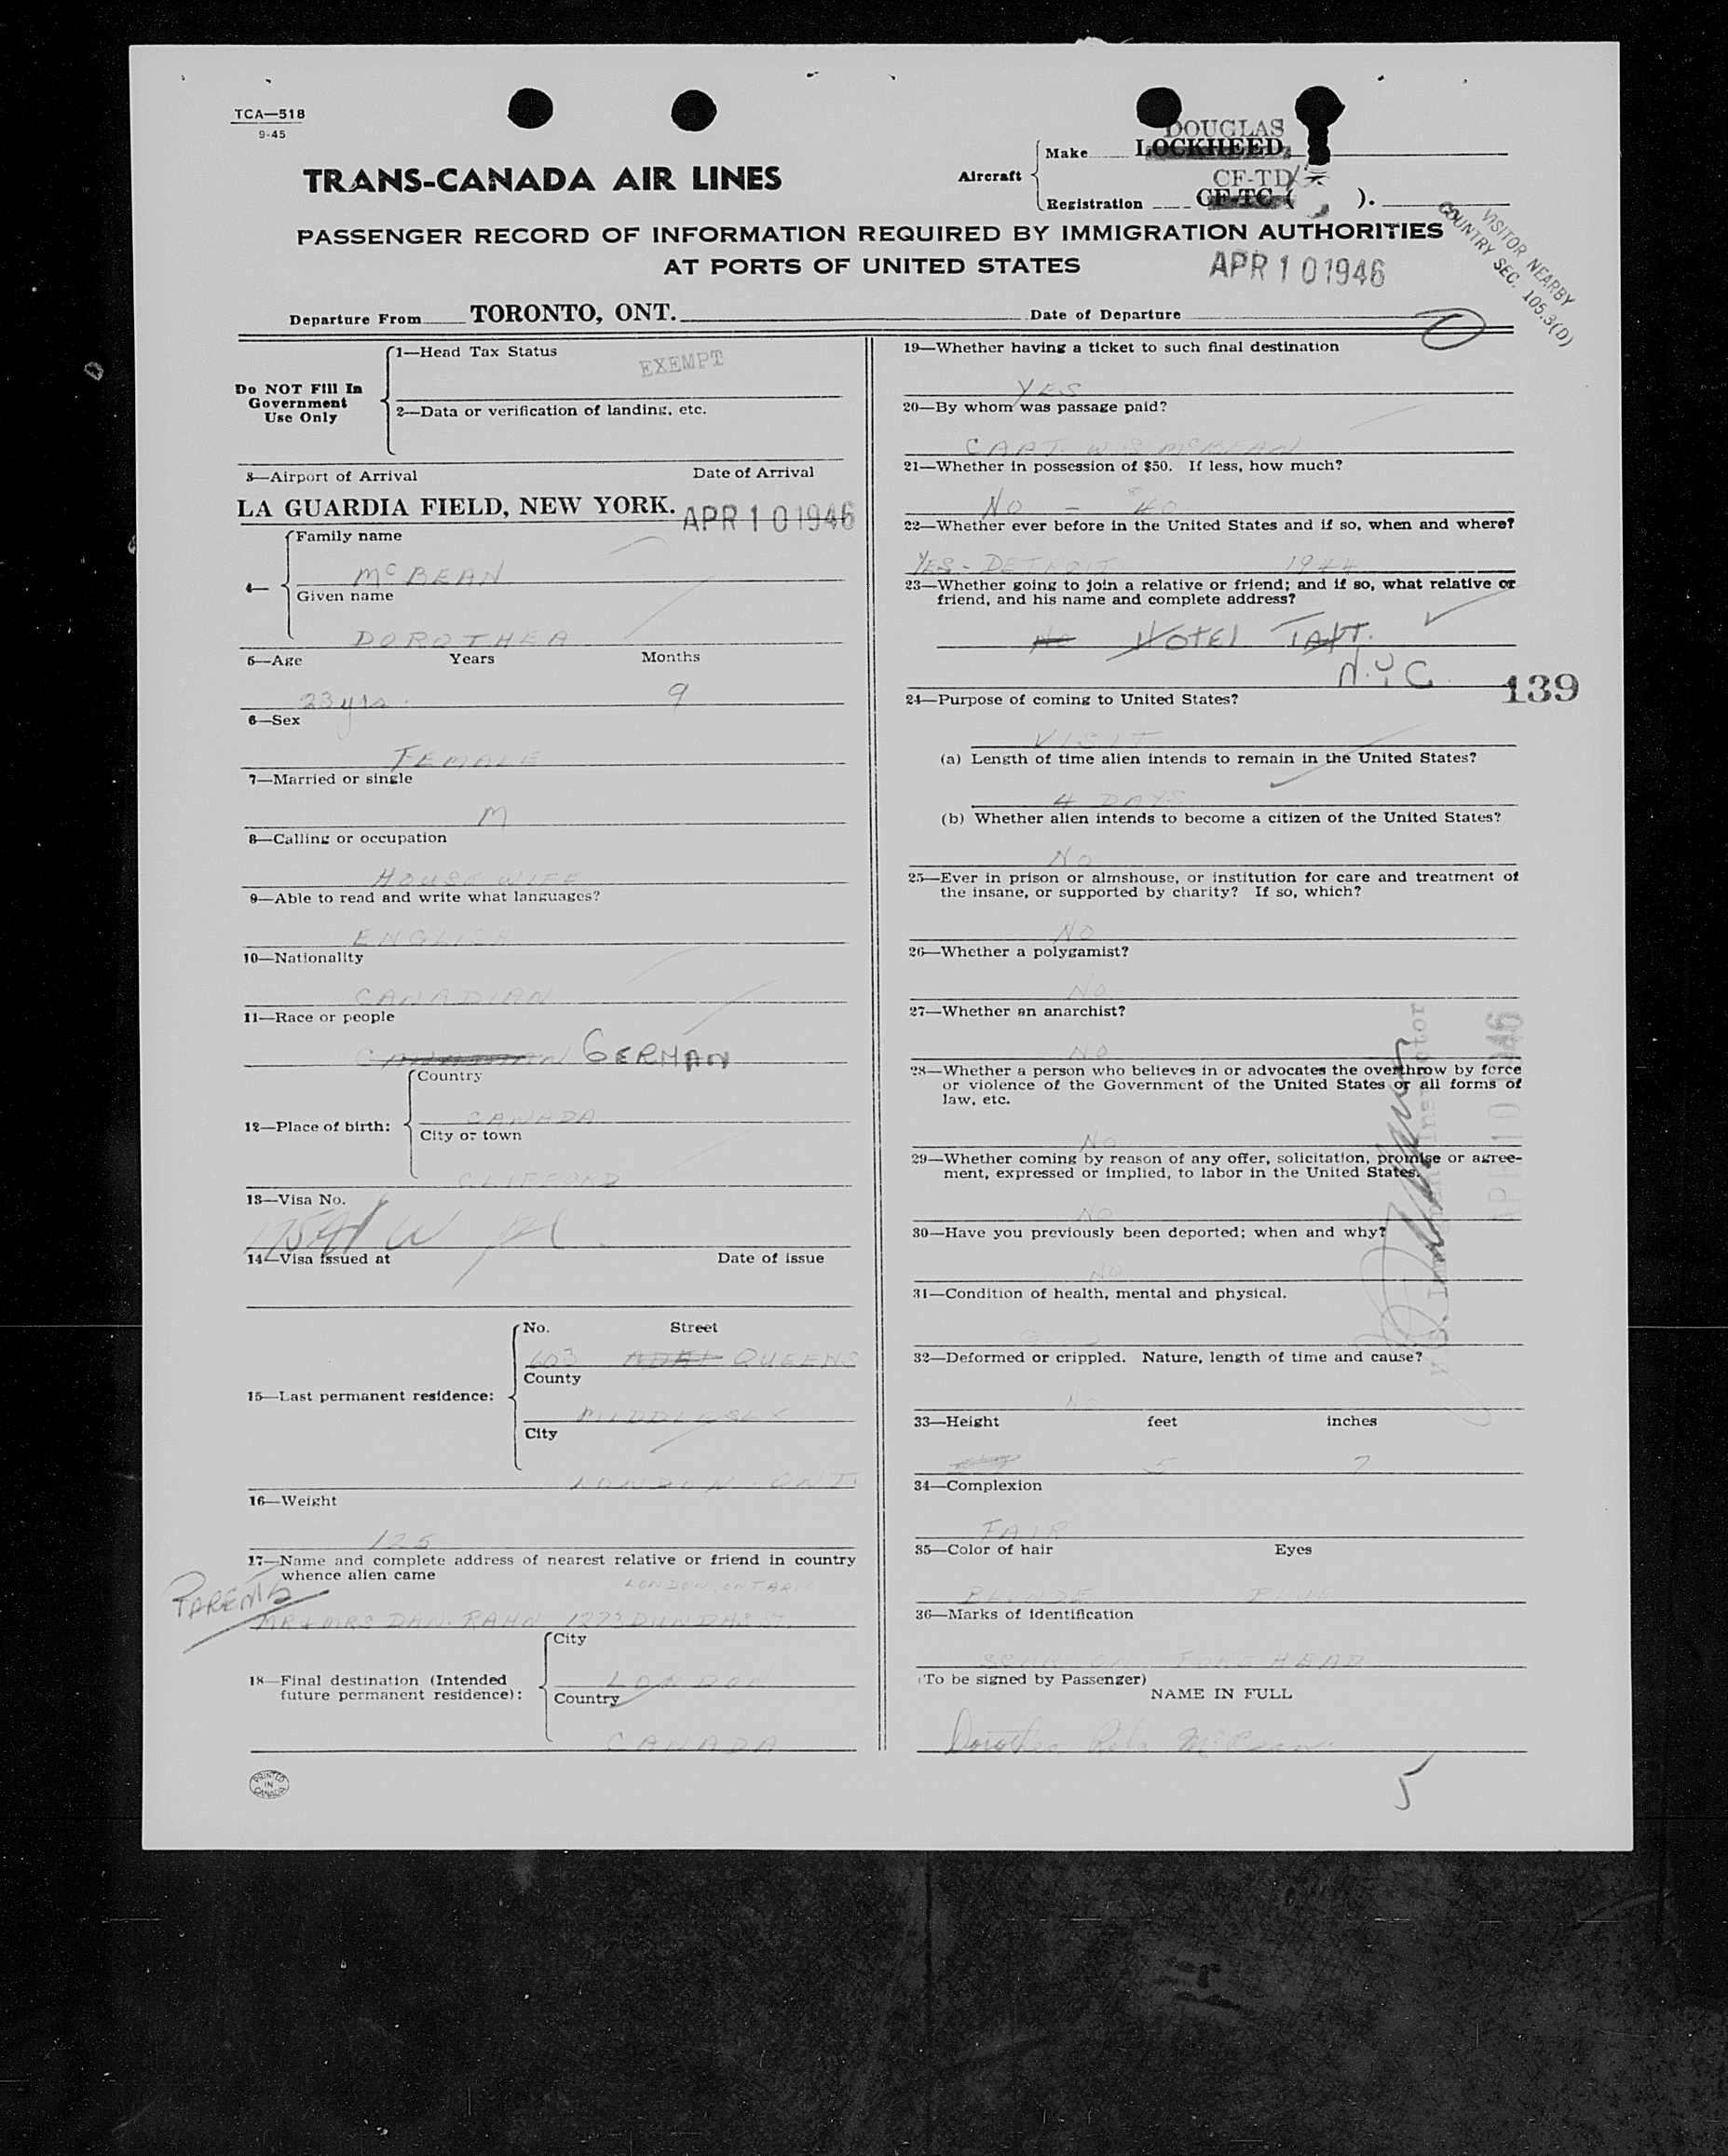 TCA—518
9-45
TRANS-CANADA AIR LINES
Aircraft
Make DOUGLAS
LOCKHEED
CF-TD
Registration CF-TC ( ).
PASSENGER RECORD OF INFORMATION REQUIRED BY IMMIGRATION AUTHORITIES
AT PORTS OF UNITED STATES
APR 10 1946
VISITOR NEARBY
COUNTRY SEC. 105.3(D)
Departure From TORONTO, ONT. Date of Departure
Do NOT Fill In
Government
Use Only
1—Head Tax Status
EXEMPT
2—Data or verification of landing, etc.
3—Airport of Arrival Date of Arrival
LA GUARDIA FIELD, NEW YORK. APR 10 1946
4—
Family name
McBEAN
Given name
DOROTHEA
5—Age Years Months
23 yrs. 9
6—Sex
FEMALE
7—Married or single
M
8—Calling or occupation
HOUSEWIFE
9—Able to read and write what languages?
ENGLISH
10—Nationality
CANADIAN
11—Race or people
CANADIAN GERMAN
12—Place of birth:
Country
CANADA
City or town
CLIFFORD
13—Visa No.
14—Visa issued at Date of issue
15—Last permanent residence:
No. Street
603 QUEENS
County
MIDDLESEX
City
LONDON ONT.
16—Weight
125
17—Name and complete address of nearest relative or friend in country
whence alien came
LONDON, ONTARIO
PARENTS
MR & MRS DAN. RAHN 1273 DUNDAS ST.
18—Final destination (Intended
future permanent residence):
City
LONDON
Country
CANADA
PRINTED
IN
CANADA
19—Whether having a ticket to such final destination
YES
20—By whom was passage paid?
CAPT. W S McBEAN
21—Whether in possession of $50. If less, how much?
NO — $40
22—Whether ever before in the United States and if so, when and where?
YES - DETROIT 1944
23—Whether going to join a relative or friend; and if so, what relative or
friend, and his name and complete address?
No HOTEL TAFT.
N.Y.C.
139
24—Purpose of coming to United States?
VISIT
(a) Length of time alien intends to remain in the United States?
4 DAYS
(b) Whether alien intends to become a citizen of the United States?
NO
25—Ever in prison or almshouse, or institution for care and treatment of
the insane, or supported by charity? If so, which?
NO
26—Whether a polygamist?
NO
27—Whether an anarchist?
NO
28—Whether a person who believes in or advocates the overthrow by force
or violence of the Government of the United States or all forms of
law, etc.
NO
29—Whether coming by reason of any offer, solicitation, promise or agree-
ment, expressed or implied, to labor in the United States.
NO
30—Have you previously been deported; when and why?
NO
31—Condition of health, mental and physical.
32—Deformed or crippled. Nature, length of time and cause?
No
33—Height feet inches
5 7
34—Complexion
FAIR
35—Color of hair Eyes
BLONDE BLUE
36—Marks of identification
SCAR ON FOREHEAD
(To be signed by Passenger)
NAME IN FULL
Dorothea Reta McBean.
5